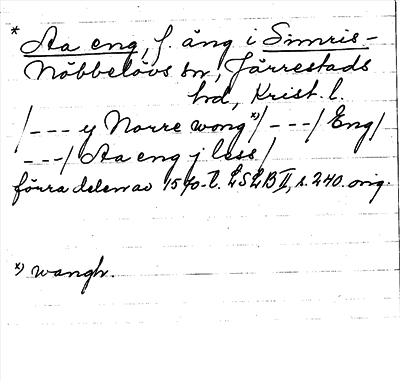 * Aa eng, f. äng i Simris-
Nöbbelövs sn, Järrestads
hd, Krist. l.
/--- y Norre wong *)/ ---/ Eng/
---/ Aa eng j less /
förra delen av 1570-t. LSLB II, s. 240. orig.
*) wangh.